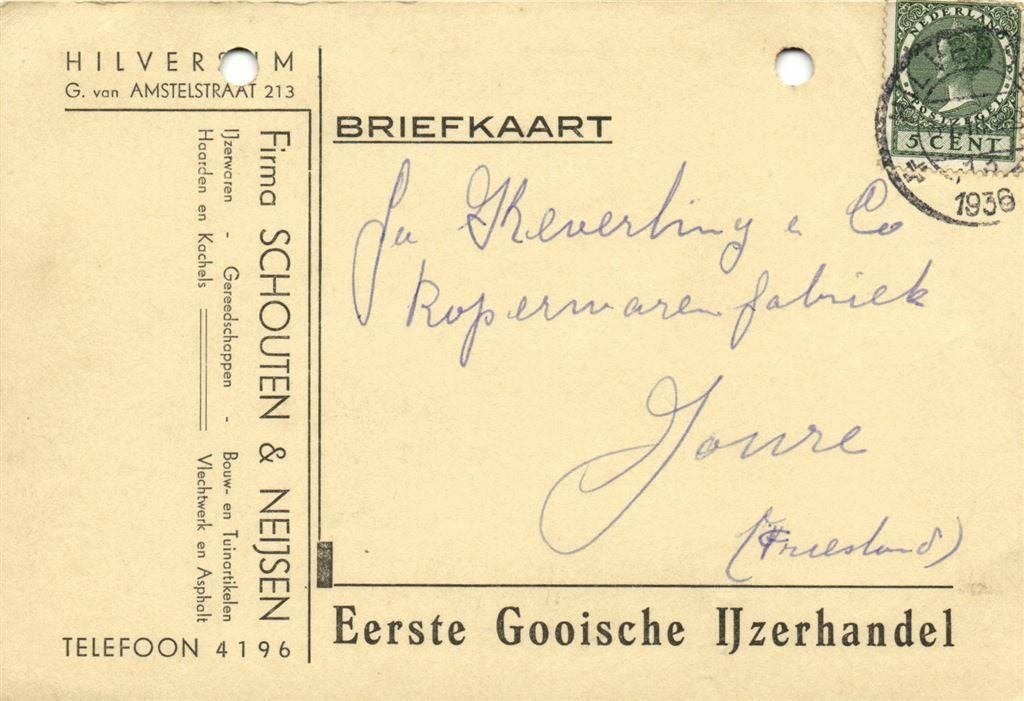 HILVERSUM
G. van AMSTELSTRAAT 213
Firma SCHOUTEN & NEIJSEN
IJzerwaren - Gereedschappen - Bouw- en Tuinartikelen
Haarden en Kachels Vlechtwerk en Asphalt
TELEFOON 4196
BRIEFKAART
NEDERLAND
5 CENT
1936
Fa Keverling & Co
Koperwarenfabriek
Joure
(Friesland)
Eerste Gooische IJzerhandel